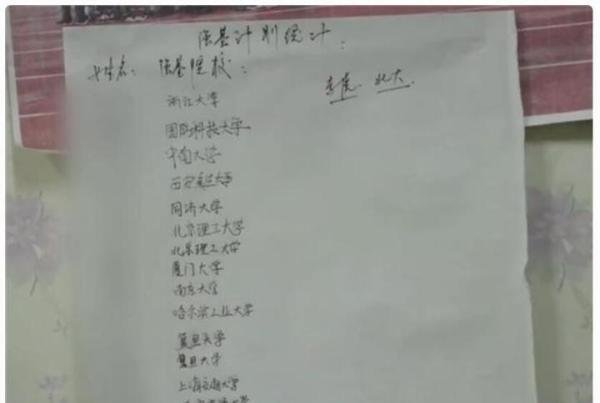 强基计划统计：
姓名： 强基院校：
李虎 北大
浙江大学
国防科技大学
中南大学
西安交通大学
同济大学
北京理工大学
北京理工大学
厦门大学
南京大学
哈尔滨工业大学
复旦大学
复旦大学
上海交通大学